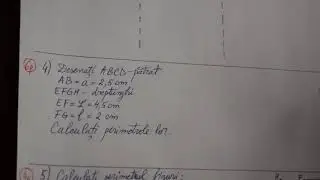 4) Desenați ABCD - pătrat
AB = a = 2,5 cm
EFGH - dreptunghi
EF = L = 4,5 cm
FG = l = 2 cm
Calculați perimetrele lor.
?
5) Calculați perimetrul figurii: